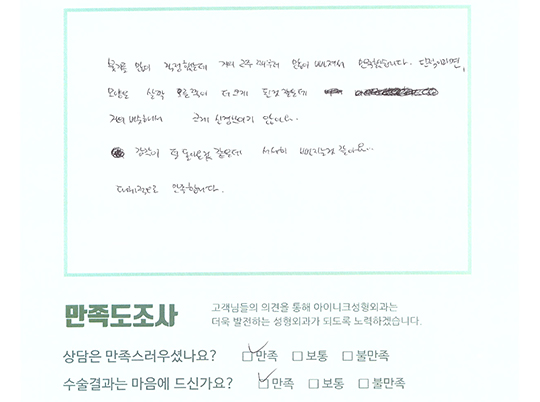 붓기를 많이 걱정했는데 거의 2주 지나니 많이 빠져서 만족했습니다. 단점이라면,
모양은 살짝 오른쪽이 더 크게 된것 같은데
거의 비슷해서 크게 신경쓰이지 않아요.
감각이 덜 돌아온것 같은데 서서히 빠지는것 같아요..
전체적으로 만족합니다.
만족도조사
고객님들의 의견을 통해 아이니크성형외과는
더욱 발전하는 성형외과가 되도록 노력하겠습니다.
상담은 만족스러우셨나요? ☑만족 □보통 □불만족
수술결과는 마음에 드신가요? ☑만족 □보통 □불만족